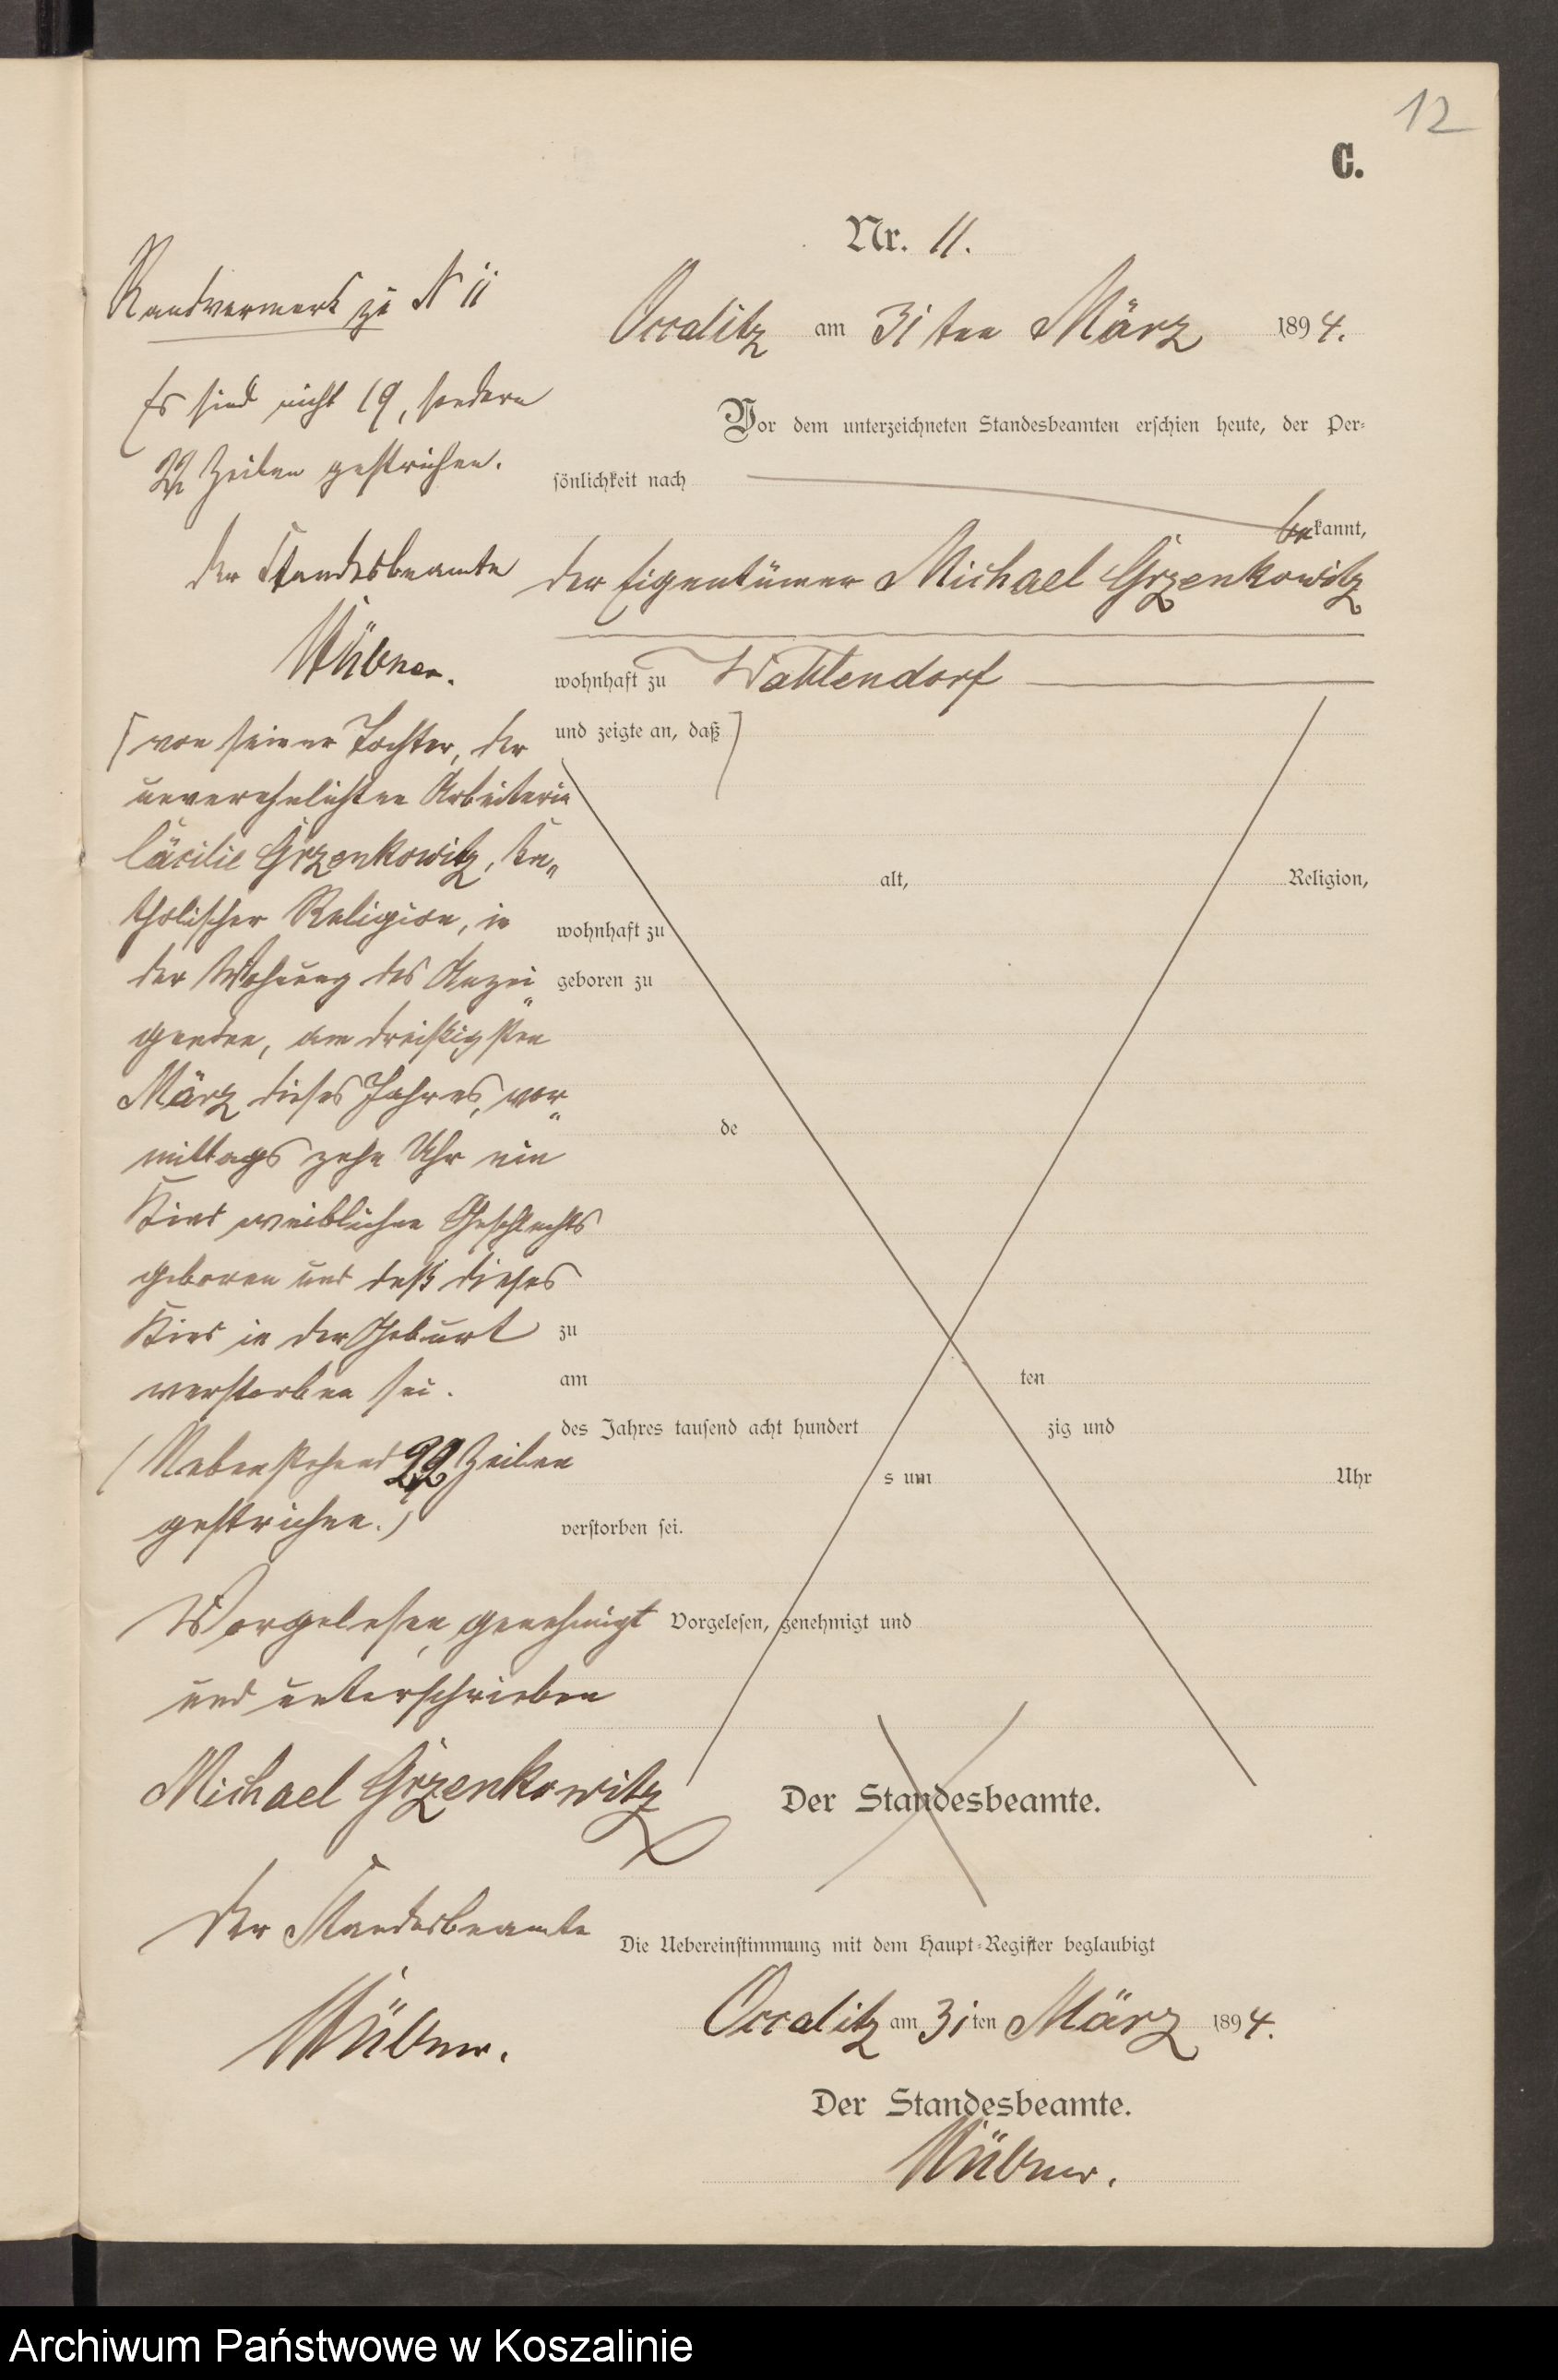 12
C.
Nr. 11.
Randvermerk zu N 11
Es sind nicht 19, sondern
22 Zeilen gestrichen.
Der Standesbeamte
Hübner.
Occalitz am 31 ten März 1894.
Vor dem unterzeichneten Standesbeamten erschien heute, der Per-
sönlichkeit nach
bekannt,
der Eigentümer Michael Grzenkowitz
wohnhaft zu Wahlendorf
und zeigte an, daß
[von seiner Tochter, der
unverehelichten Arbeiterin
Cäcilie Grzenkowitz, ka-
tholischer Religion, in
der Wohnung des Anzei-
genden, am dreißigsten
März dieses Jahres, vor-
mittags zehn Uhr ein
Kind weiblichen Geschlechts
geboren und daß dieses
Kind in der Geburt
verstorben sei.
(Nebenstehend 22 Zeilen
gestrichen.)
Vorgelesen, genehmigt
und unterschrieben
Michael Grzenkowitz
Der Standesbeamte
Hübner.
alt, Religion,
wohnhaft zu
geboren zu
de
zu
am ten
des Jahres tausend acht hundert zig und
s um Uhr
verstorben sei.
Vorgelesen, genehmigt und
Der Standesbeamte.
Die Uebereinstimmung mit dem Haupt-Register beglaubigt
Occalitz am 31ten März 1894.
Der Standesbeamte.
Hübner.
Archiwum Państwowe w Koszalinie